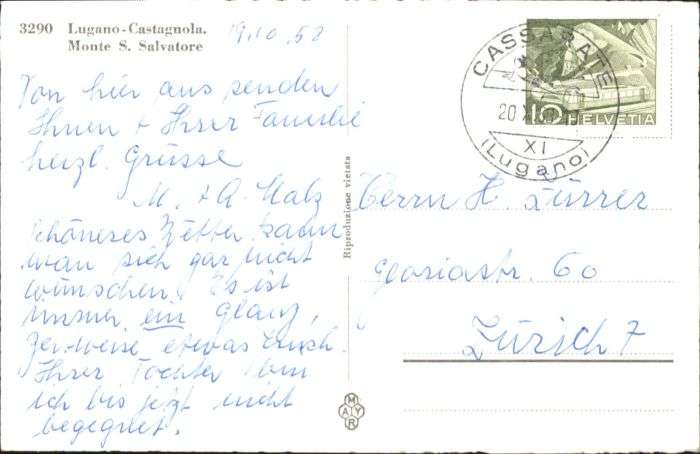 3290 Lugano-Castagnola.
Monte S. Salvatore
19.10.52
Von hier aus senden
Ihnen + Ihrer Familie
herzl. Grüsse
M. + A. Malz
Schöneres Wetter kann
man sich gar nicht
wünschen. Es ist
immer ein Glanz,
zeitweise etwas frisch.
Ihrer Tochter bin
ich bis jetzt nicht
begegnet.
Reproduzione vietata
CASSARATE
20 X
XI
(Lugano)
10
HELVETIA
Herrn H. Zürrer
Gloriastr. 60
Zürich 7
MAYR